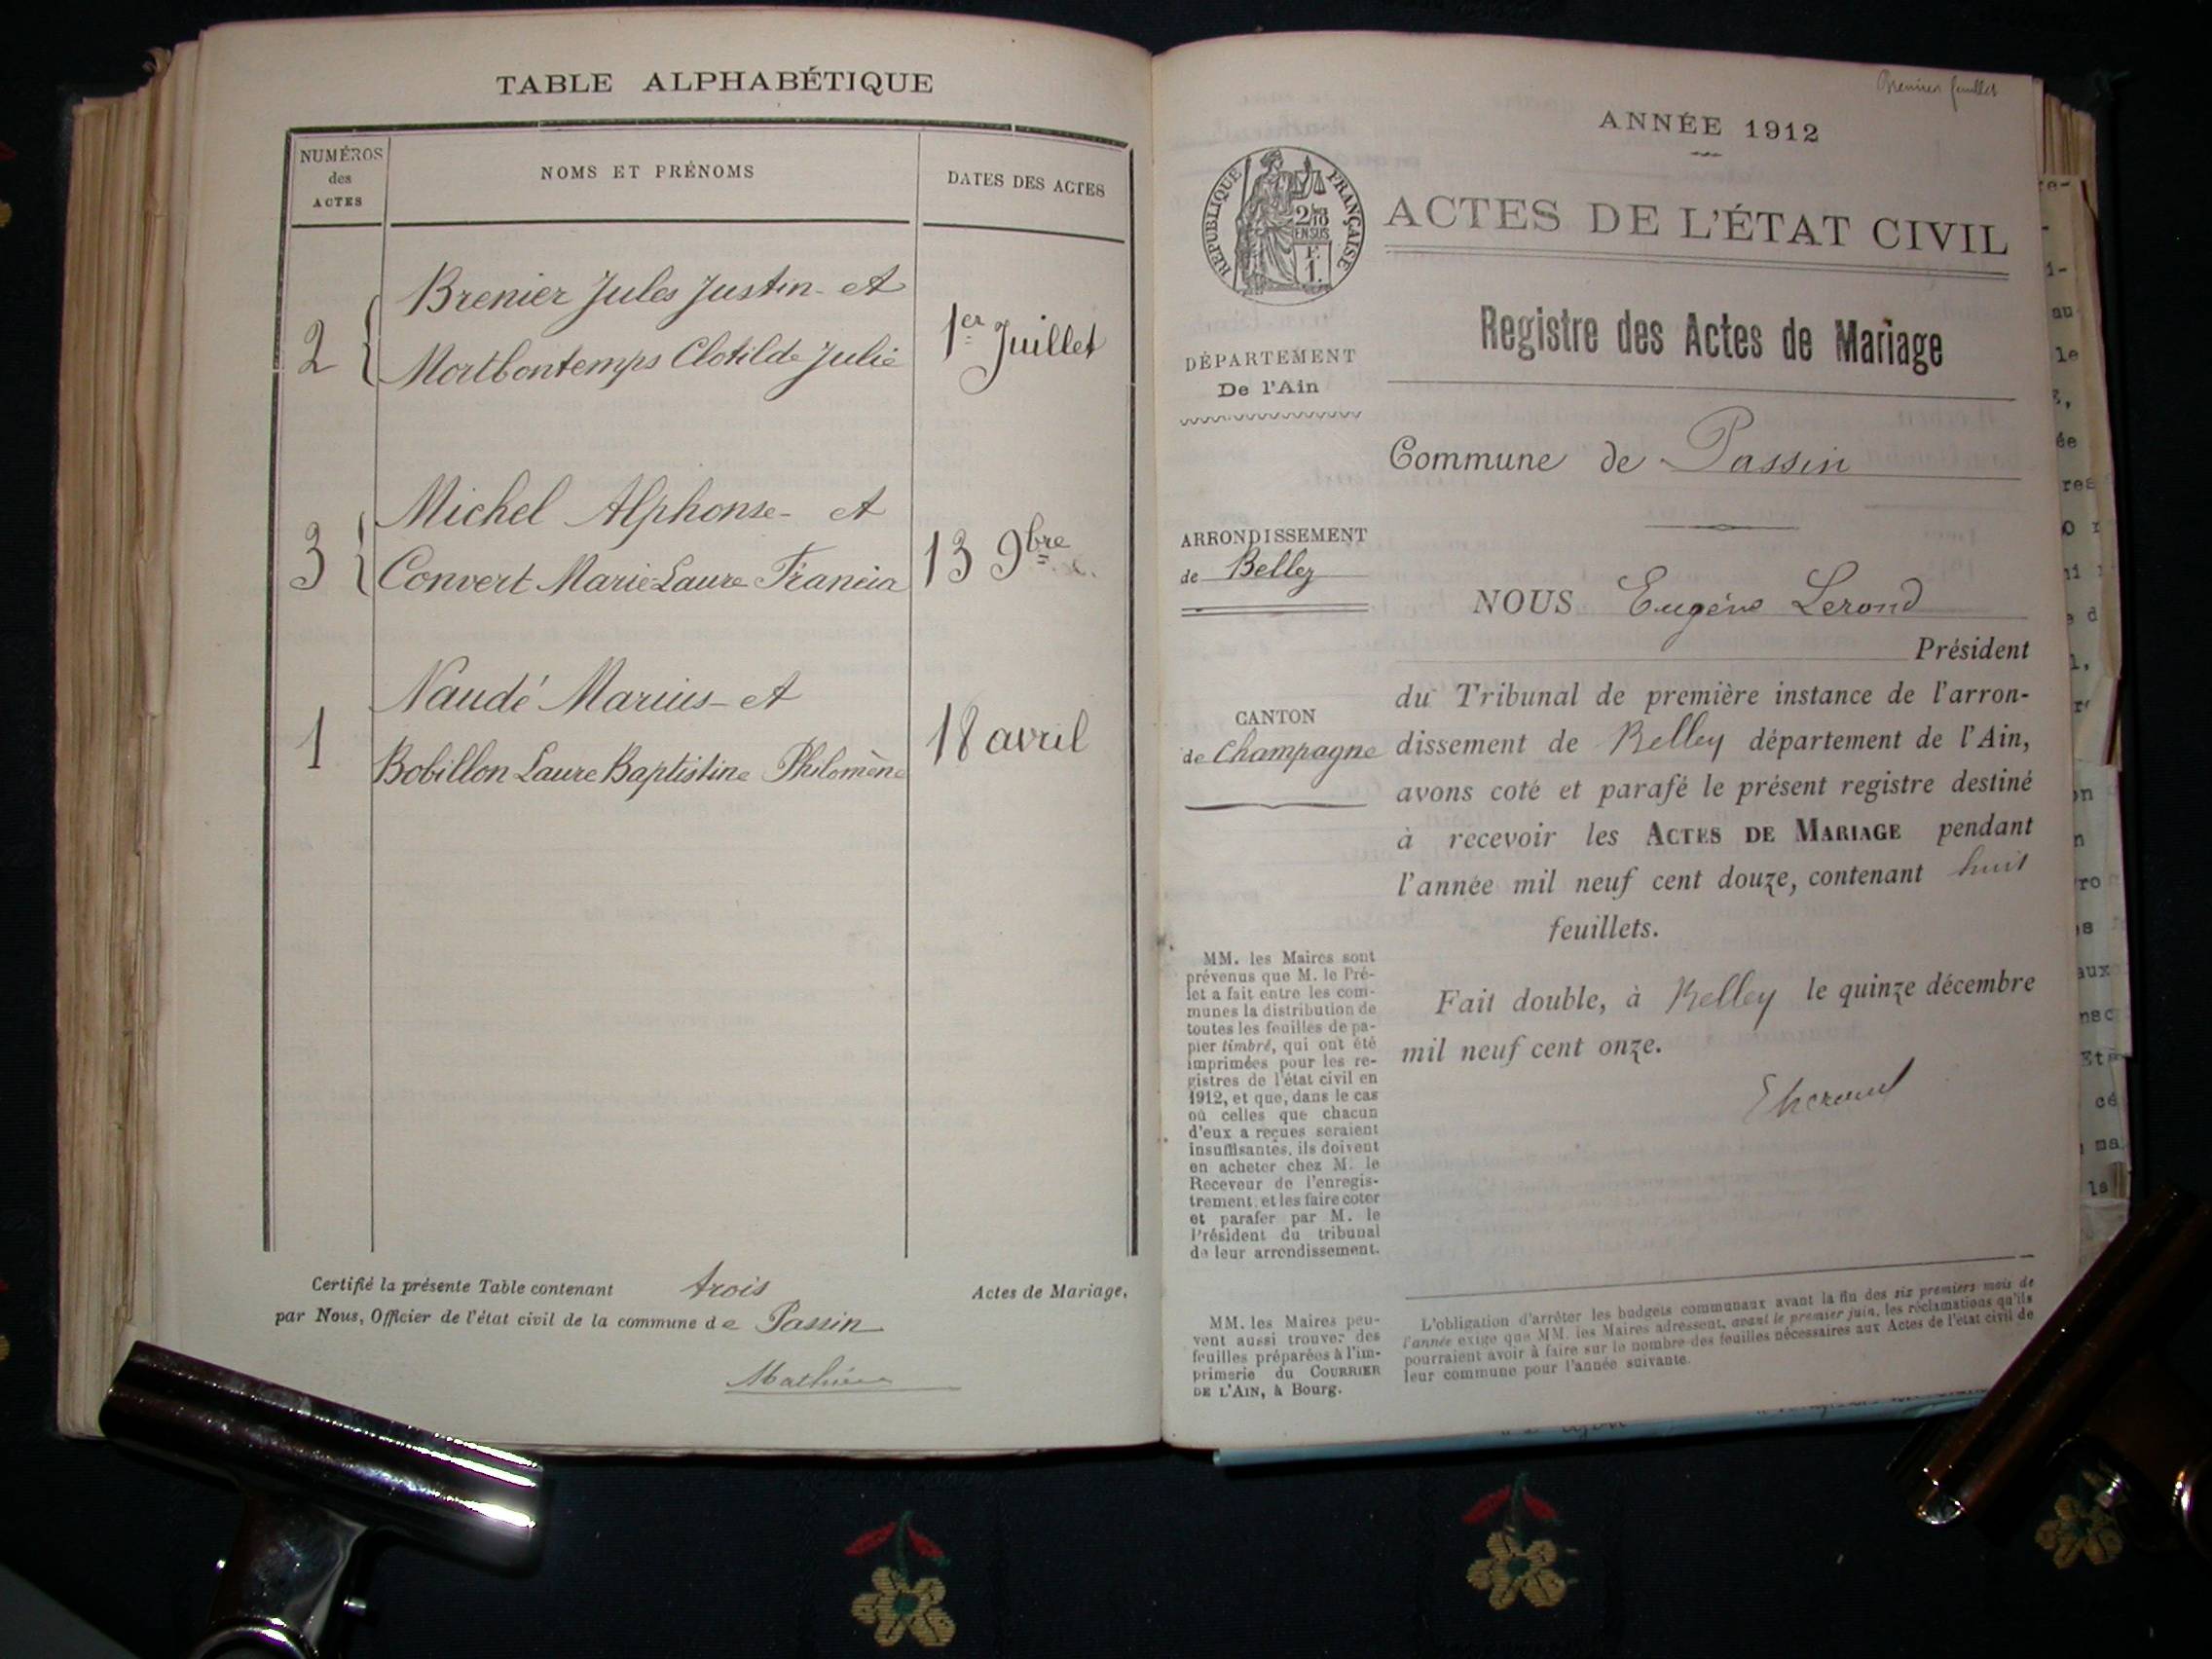 TABLE ALPHABÉTIQUE
NUMÉROS
des
ACTES
NOMS ET PRÉNOMS
DATES DES ACTES
2
Brenier Jules Justin et
Mortbontemps Clotilde Julie
1er Juillet
3
Michel Alphonse - et
Convert Marie Laure Francia
13 9bre
1
Naudé Marius - et
Bobillon Laure Baptistine Philomène
18 avril
Certifié la présente Table contenant trois Actes de Mariage,
par Nous, Officier de l'état civil de la commune de Passin
Mathieu
Premier feuillet
ANNÉE 1912
RÉPUBLIQUE FRANÇAISE
2/10
EN SUS
F.
1.
ACTES DE L'ÉTAT CIVIL
Registre des Actes de Mariage
DÉPARTEMENT
De l'Ain
Commune de Passin
ARRONDISSEMENT
de Belley
CANTON
de Champagne
NOUS Eugène Lerond
Président
du Tribunal de première instance de l'arron-
dissement de Belley département de l'Ain,
avons coté et parafé le présent registre destiné
à recevoir les ACTES DE MARIAGE pendant
l'année mil neuf cent douze, contenant huit
feuillets.
Fait double, à Belley le quinze décembre
mil neuf cent onze.
MM. les Maires sont
prévenus que M. le Pré-
fet a fait entre les com-
munes la distribution de
toutes les feuilles de pa-
pier timbré, qui ont été
imprimées pour les re-
gistres de l'état civil en
1912, et que, dans le cas
où celles que chacun
d'eux a reçues seraient
insuffisantes, ils doivent
en acheter chez M. le
Receveur de l'enregis-
trement, et les faire coter
et parafer par M. le
Président du tribunal
de leur arrondissement.
MM. les Maires peu-
vent aussi trouver des
feuilles préparées à l'im-
primerie du COURRIER
DE L'AIN, à Bourg.
L'obligation d'arrêter les budgets communaux avant la fin des six premiers mois de
l'année exige que MM. les Maires adressent, avant le premier juin, les réclamations qu'ils
pourraient avoir à faire sur le nombre des feuilles nécessaires aux Actes de l'état civil de
leur commune pour l'année suivante.